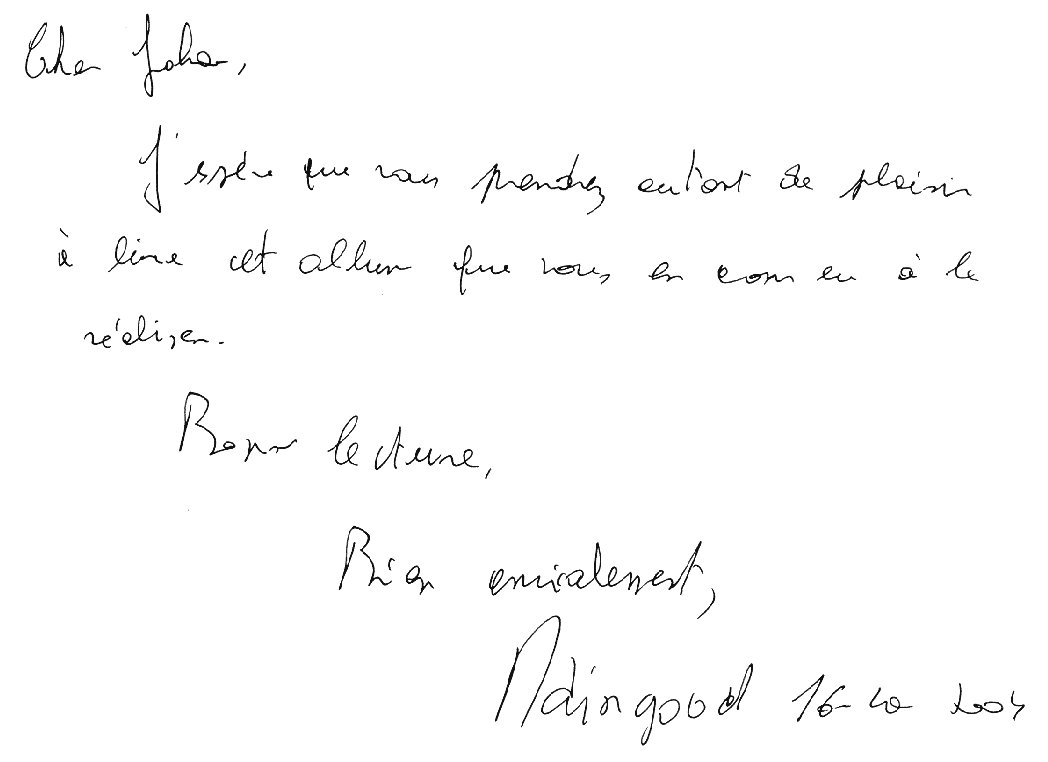 Cher Johan,
J'espère que vous prendrez autant de plaisir
à lire cet album que nous en avons eu à le
réaliser.
Bonne lecture,
Bien amicalement,
Maingoval 16-10 2004